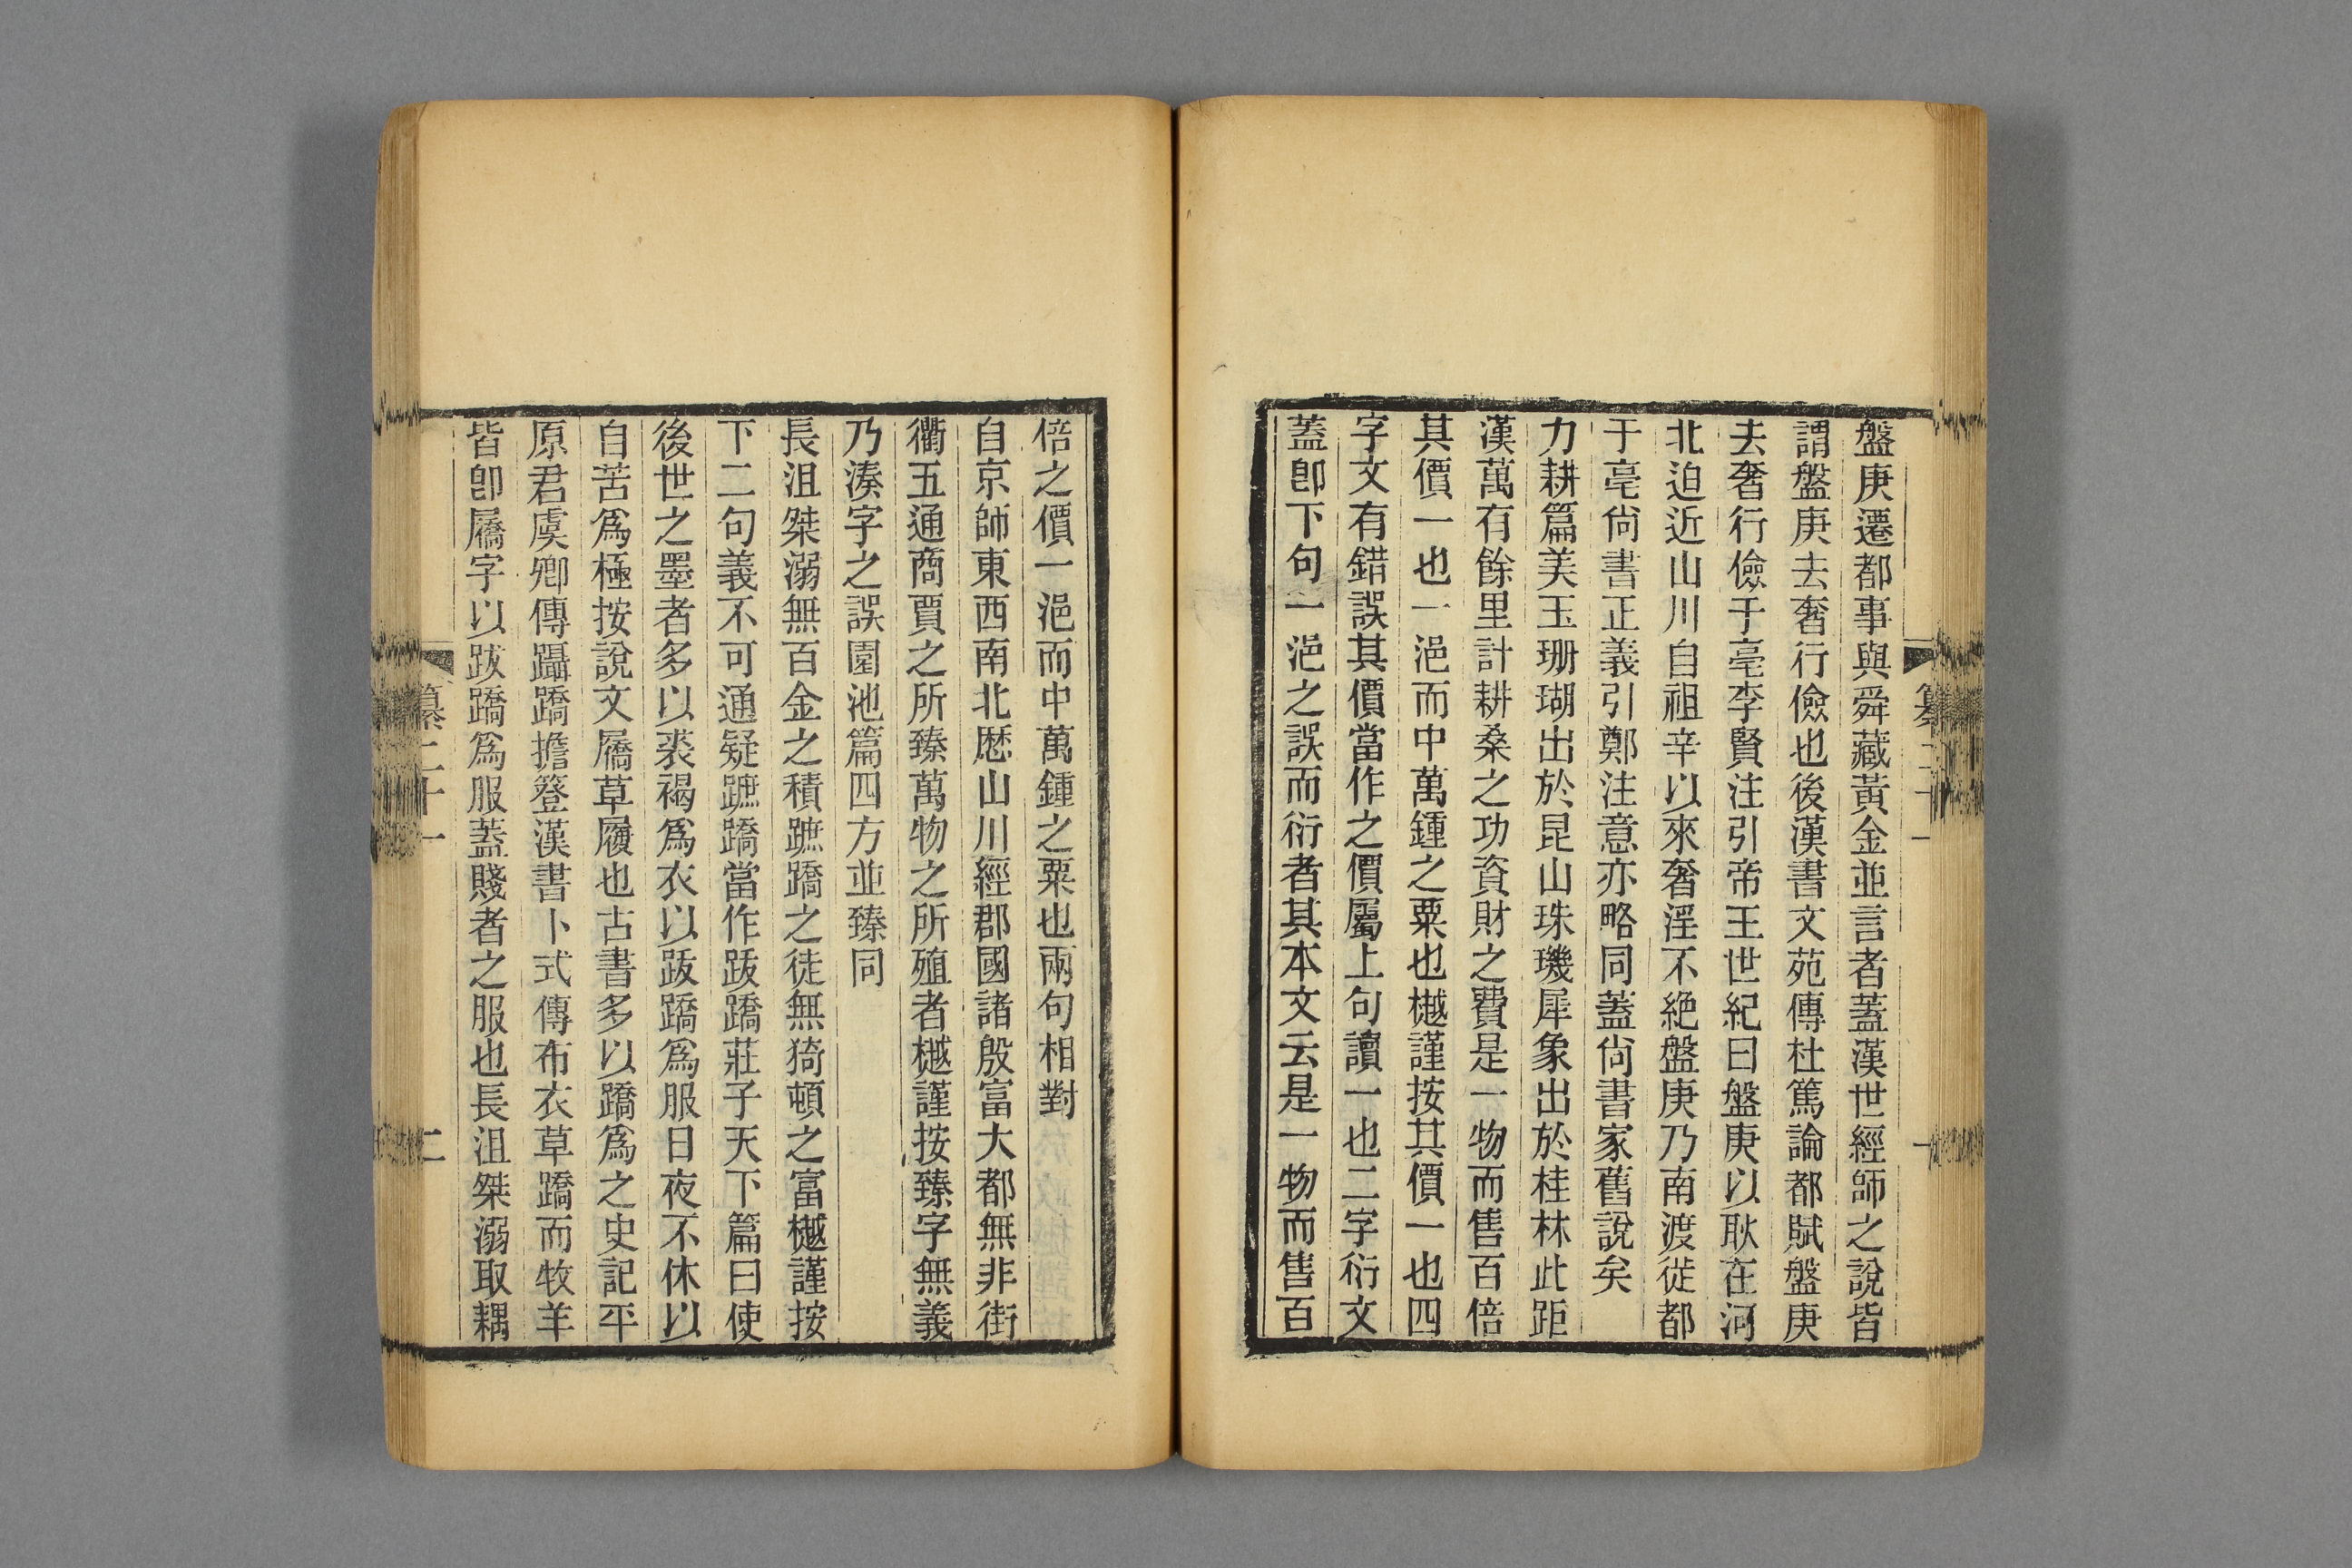 盤庚遷都事與舜藏黃金並言者蓋漢世經師之說皆
謂盤庚去奢行儉也後漢書文苑傳杜篤論都賦盤庚
去奢行儉于亳李賢注引帝王世紀曰盤庚以耿在河
北迫近山川自祖辛以來奢淫不絶盤庚乃南渡徙都
于亳尙書正義引鄭注意亦略同蓋尙書家舊說矣
力耕篇美玉珊瑚出於昆山珠璣犀象出於桂林此距
漢萬有餘里計耕桑之功資財之費是一物而售百倍
其價一也一浥而中萬鍾之粟也樾謹按其價一也四
字文有錯誤其價當作之價屬上句讀一也二字衍文
蓋卽下句一浥之誤而衍者其本文云是一物而售百
倍之價一浥而中萬鍾之粟也兩句相對
自京師東西南北厯山川經郡國諸殷富大都無非街
衢五通商賈之所臻萬物之所殖者樾謹按臻字無義
乃湊字之誤園池篇四方並臻同
長沮桀溺無百金之積蹠蹻之徒無猗頓之富樾謹按
下二句義不可通疑蹠蹻當作跂蹻莊子天下篇曰使
後世之墨者多以裘褐爲衣以跂蹻爲服日夜不休以
自苦爲極按說文屩草履也古書多以蹻爲之史記平
原君虞卿傳躡蹻擔簦漢書卜式傳布衣草蹻而牧羊
皆卽屩字以跂蹻爲服蓋賤者之服也長沮桀溺取耦
纂二十一
二